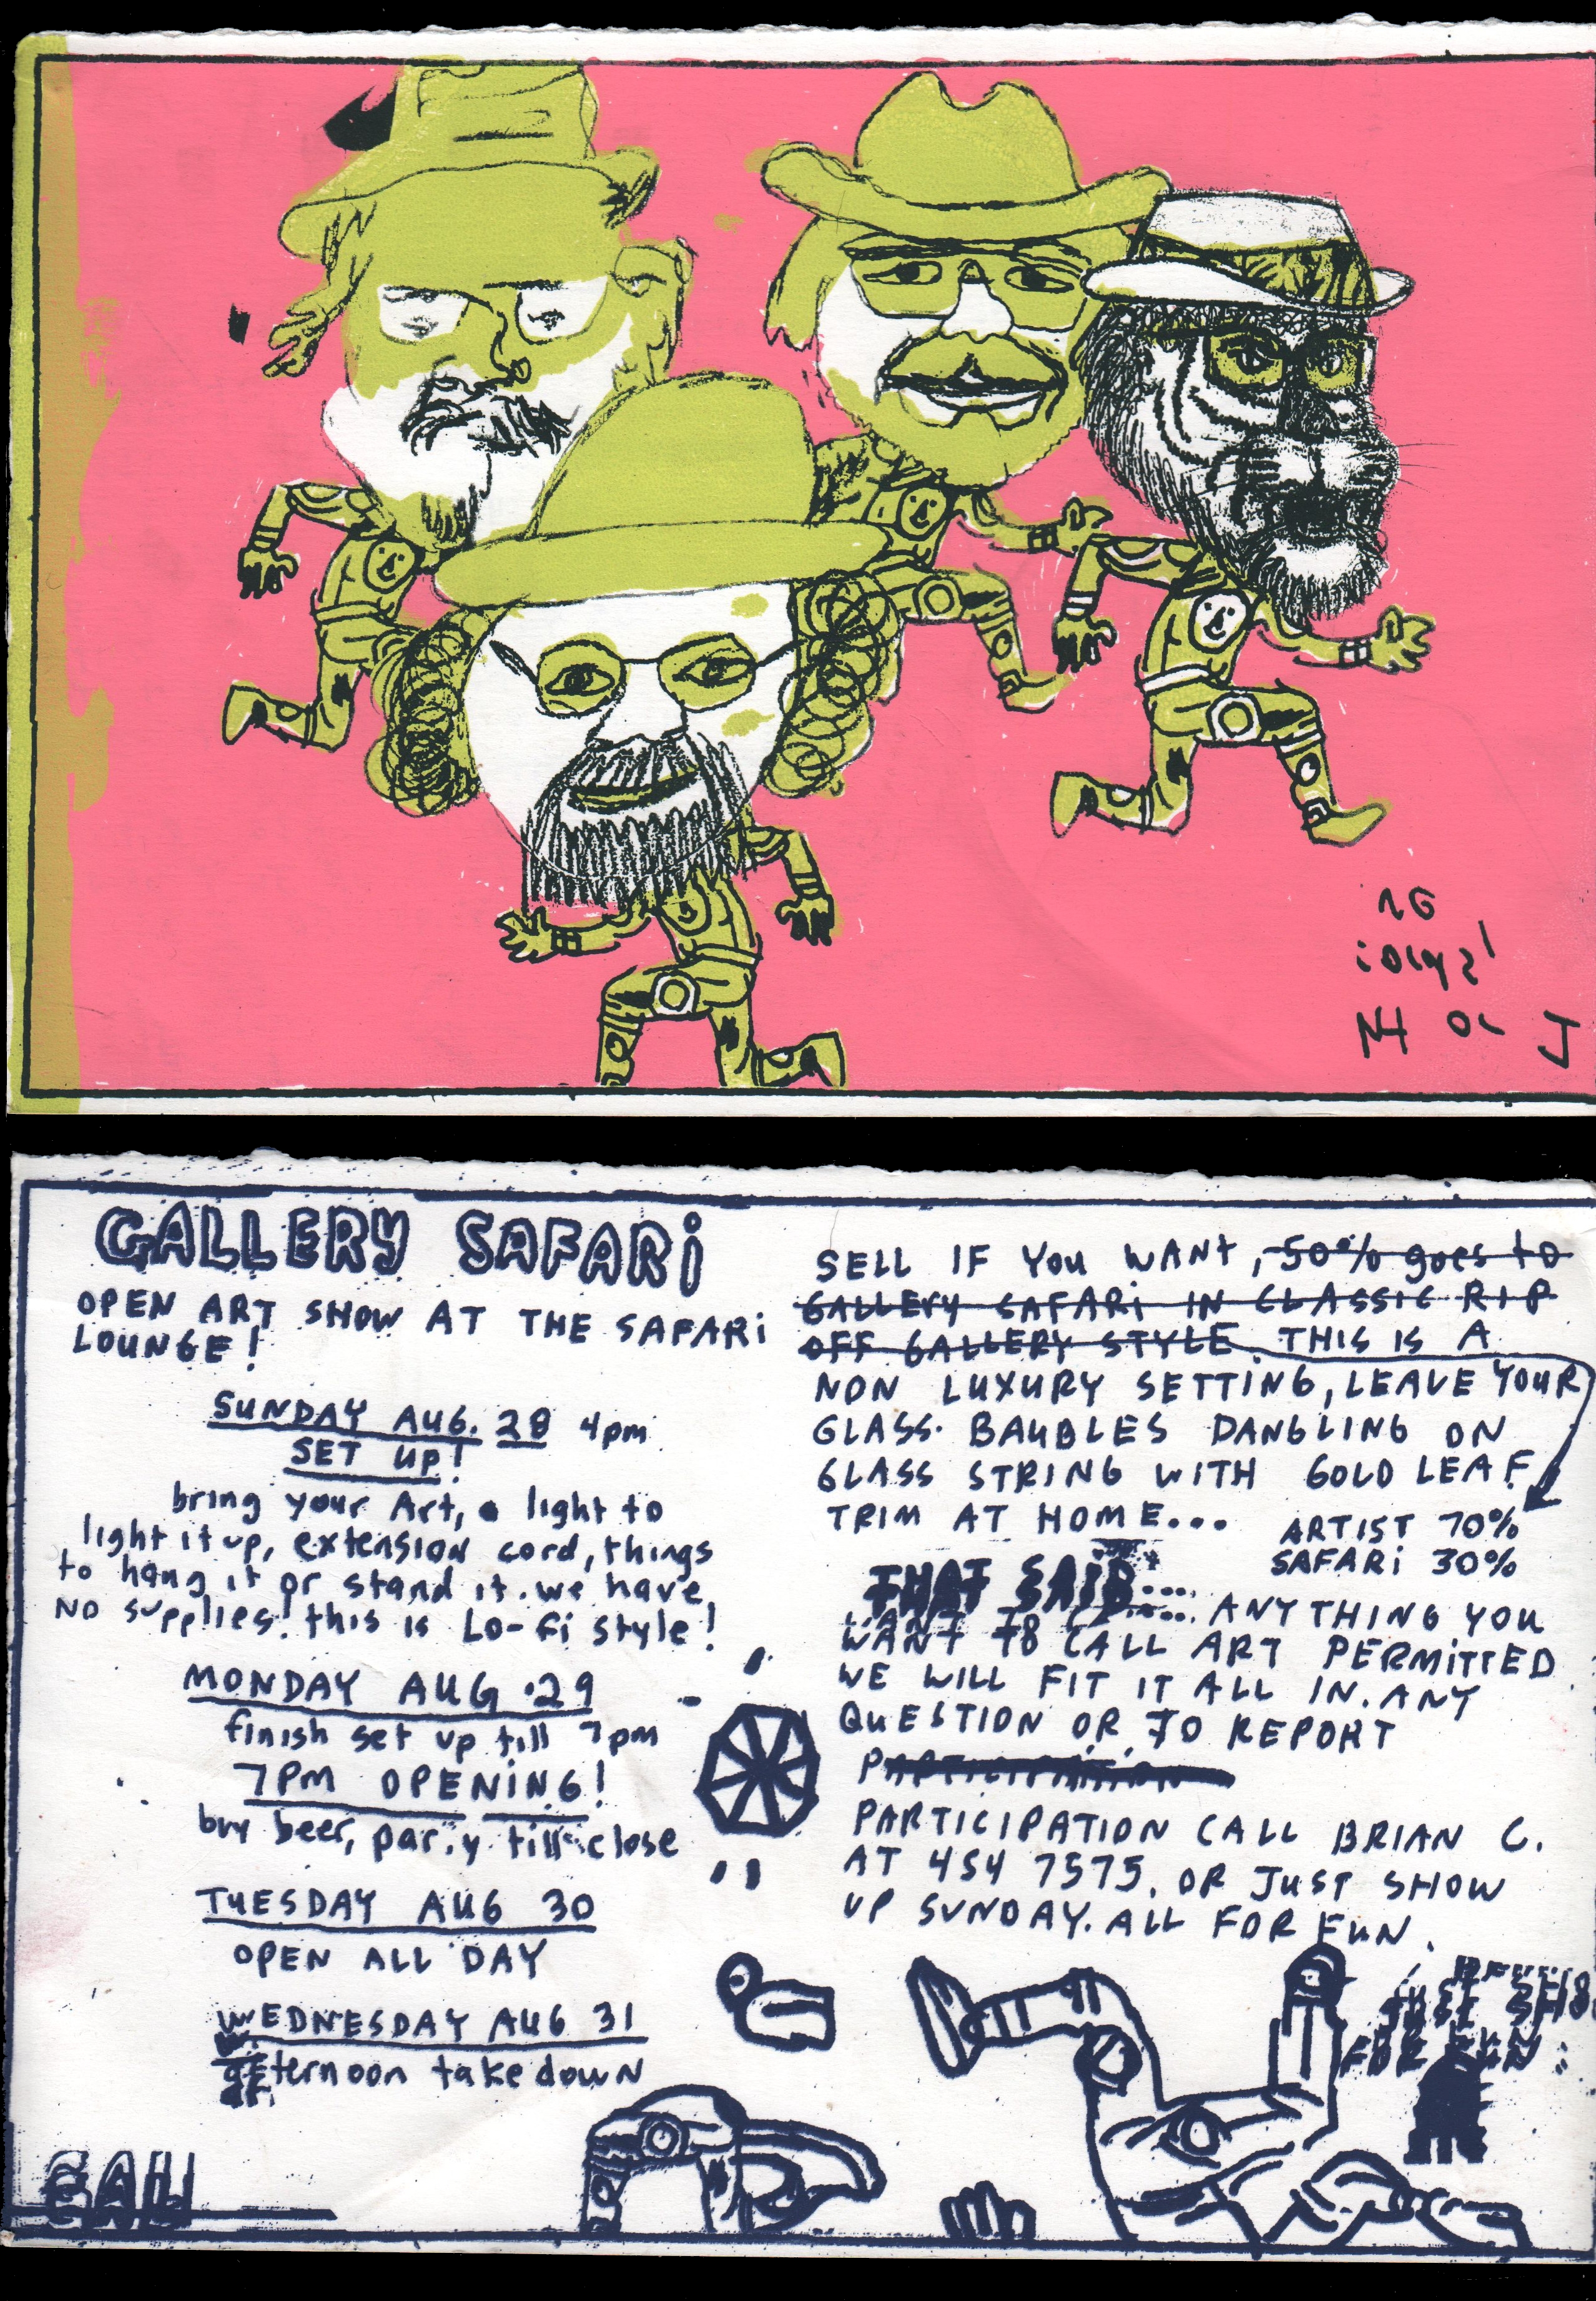 GALLERY SAFARi
OPEN ART SHOW AT THE SAFARi
LOUNGE!
SUNDAY AUG. 28 4pm
SET UP!
bring your Art, a light to
light it up, extension cord, things
to hang it or stand it. we have
NO supplies! this is LO-fi style!
MONDAY AUG. 29
finish set up till 7pm
7PM OPENiNG!
buy beer, par.y till close
TUESDAY AUG 30
OPEN ALL DAY
WEDNESDAY AUG 31
afternoon take down
SELL IF YOU WANT, 50% goes to
GALLERY SAFARi IN CLASSIC RIP
OFF GALLERY STYLE. THIS IS A
NON LUXURY SETTING, LEAVE YOUR
GLASS BAUBLES DANGLING ON
GLASS STRING WITH GOLD LEAF
TRIM AT HOME...
ARTIST 70%
SAFARi 30%
THAT SAID... ANYTHING YOU
WANT TO CALL ART PERMITTED
WE WILL FIT IT ALL IN. ANY
QUESTION OR TO REPORT
PARTICIPATION
PARTICIPATION CALL BRIAN C.
AT 454 7575. OR JUST SHOW
UP SUNDAY. ALL FOR FUN.